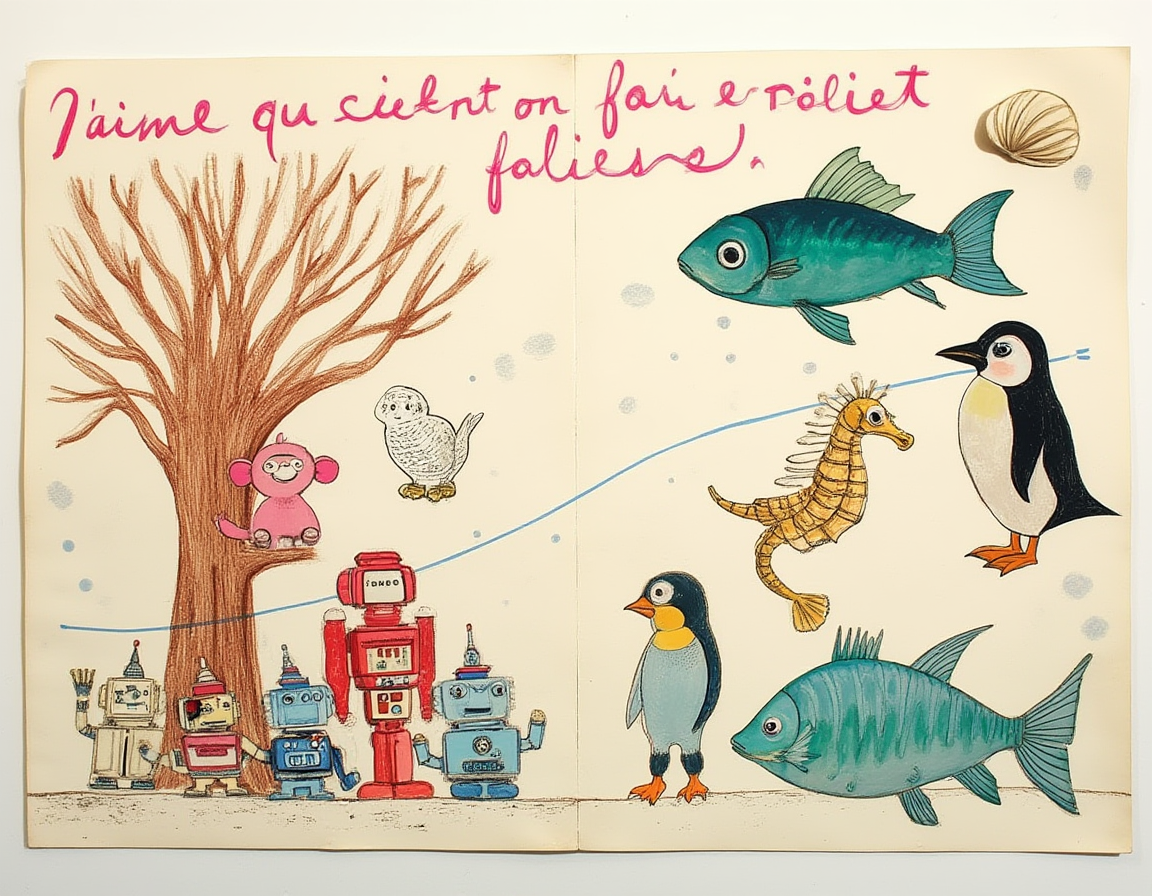 J'aime qu cieknt on fari e rôliet
faliess.
SONDO